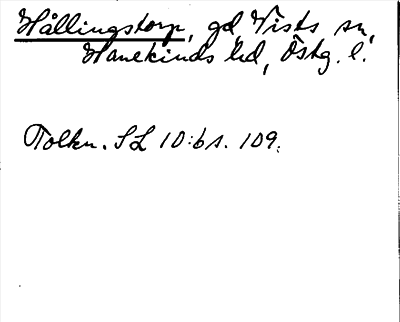 Hållingstorp, gd, Vists sn,
Hanekinds hd, Östg. l.
Tolkn. SL 10:6 s. 109.